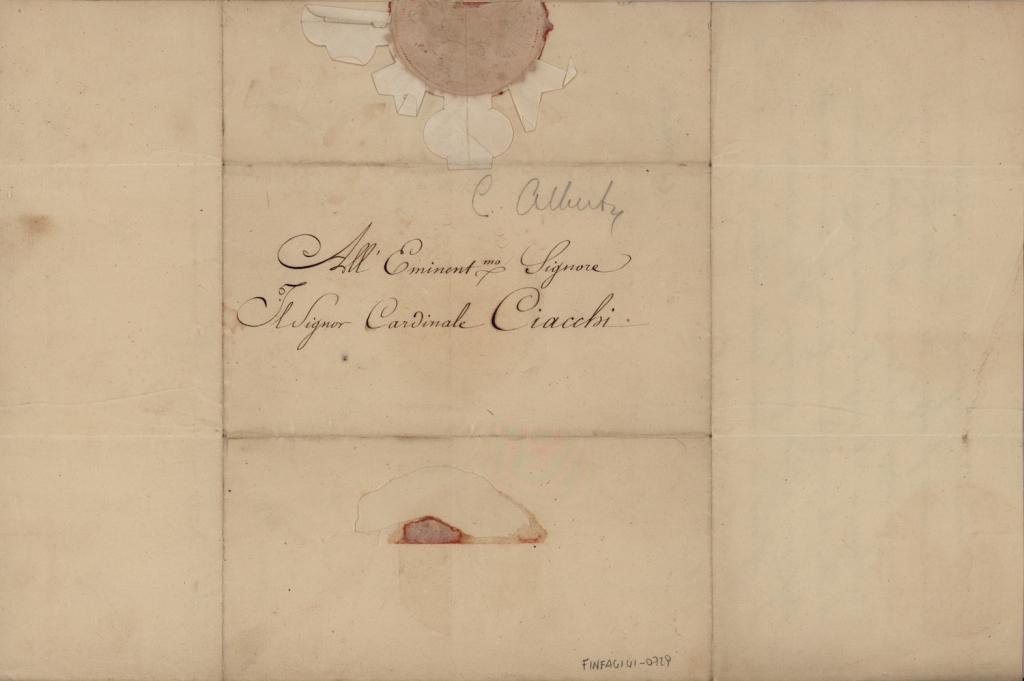 C. Albert
All' Eminent.mo Signore
Il Signor Cardinale Ciacchi.
FINFAGIUI-0729